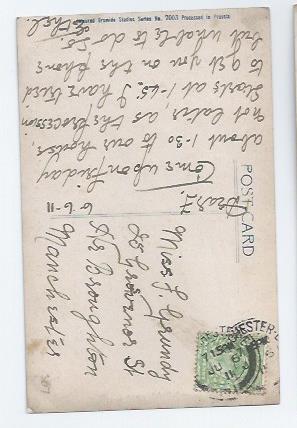 Bromide Studies Series No. 7003 Processed in Prussia
POST CARD
6-6-11
Dear
Come up on friday
about 1-30 to our house,
not later as the procession
starts at 1-45, I have tried
to get you on the phone
but unable to do so
Ethel
Miss L. Grundy
Grosvenor St
Hr Broughton
Manchester
CHESTER
JU 6
11